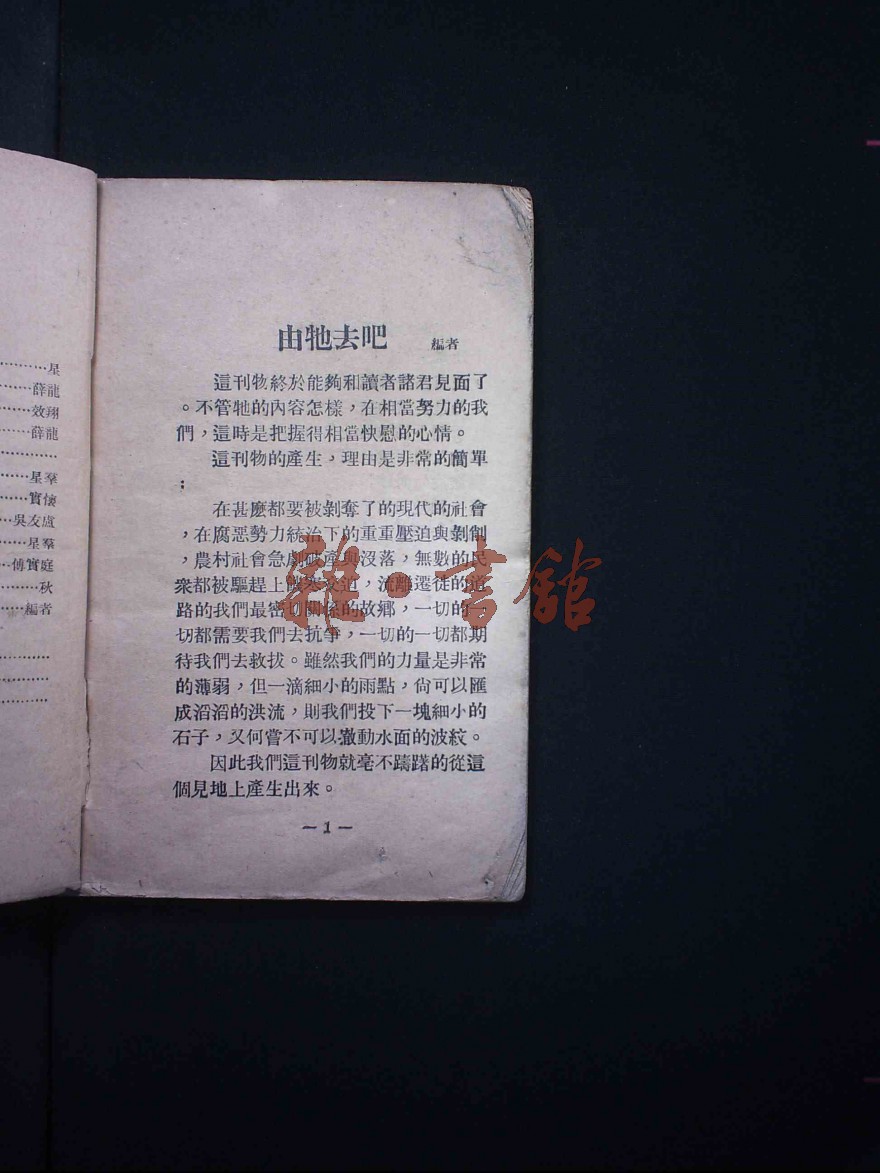 星
薛龍
效翔
薛龍
星羣
實懷
吳友虞
星羣
傅實庭
秋
編者
由牠去吧 編者
這刊物終於能夠和讀者諸君見面了
。不管牠的內容怎樣，在相當努力的我
們，這時是把握得相當快慰的心情。
這刊物的產生，理由是非常的簡單
；
在甚麽都要被剝奪了的現代的社會
，在腐惡勢力統治下的重重壓迫與剝創
，農村社會急劇破產與沒落，無數的民
衆都被驅趕上饑寒交迫，流離遷徙的道
路的我們最密切關係的故鄉，一切的一
切都需要我們去抗爭，一切的一切都期
待我們去救拔。雖然我們的力量是非常
的薄弱，但一滴細小的雨點，尙可以匯
成滔滔的洪流，則我們投下一塊細小的
石子，又何嘗不可以激動水面的波紋。
因此我們這刊物就毫不躊躇的從這
個見地上產生出來。
—1—
雜·書館